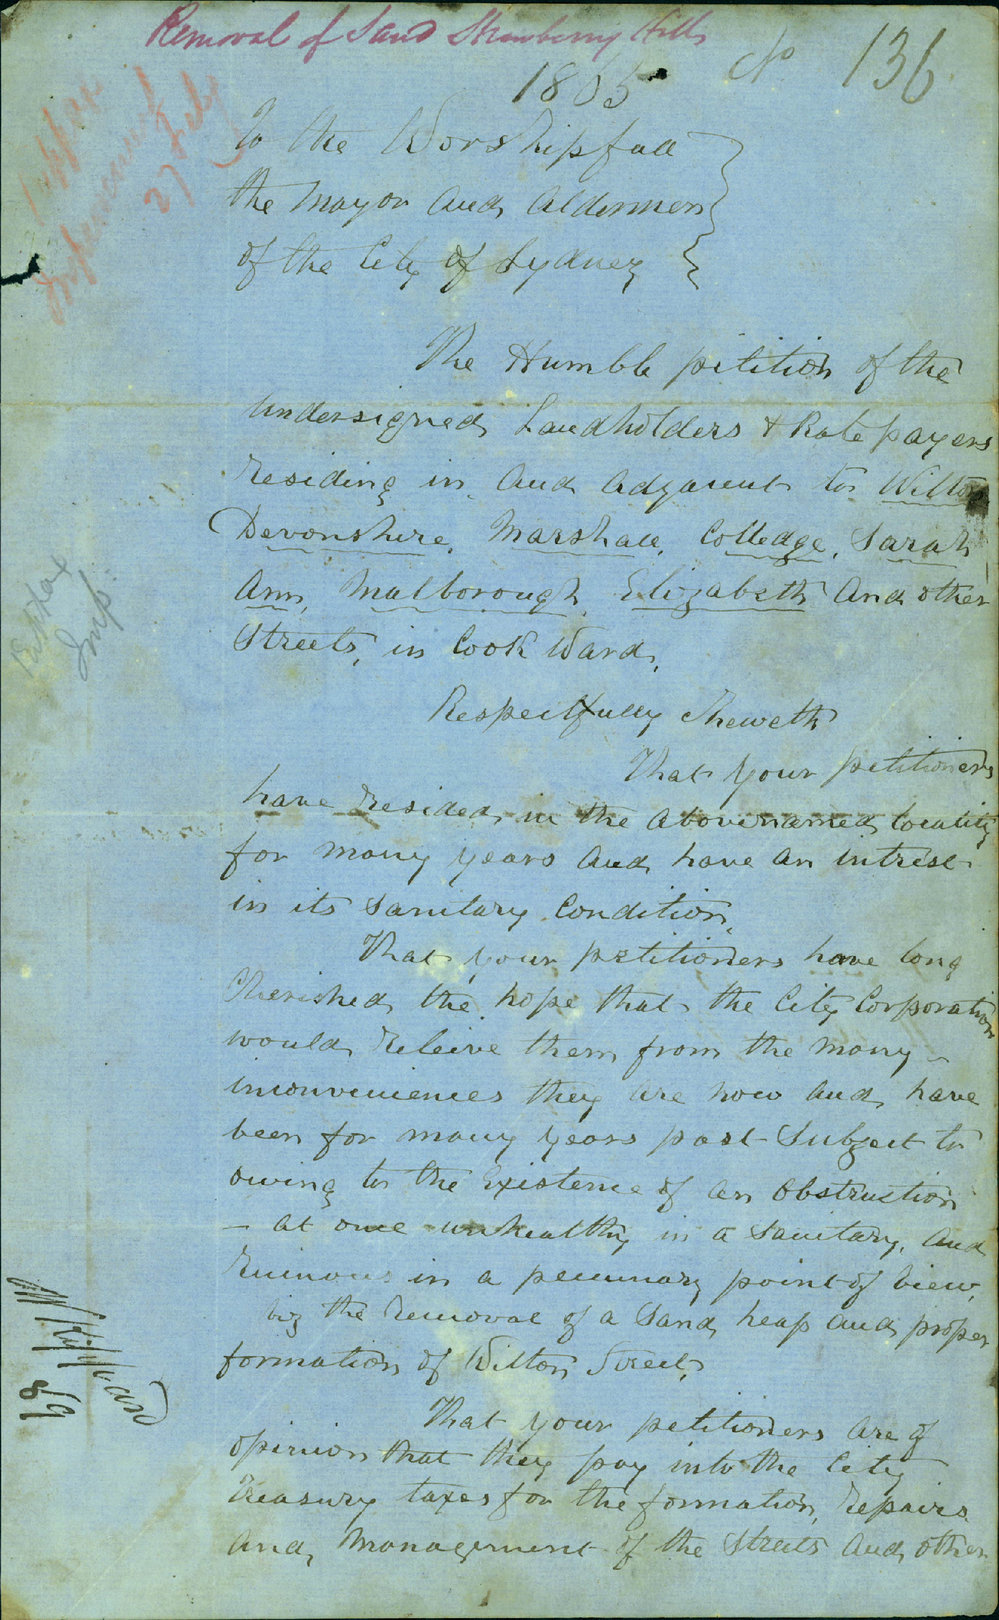 Removal of Sand Strawberry Hills
1865 No 136
27 July
To the Worshipfull
the Mayor and Aldermen
of the City of Sydney
The Humble petition of the
Undersigned Landholders & Rate payers
residing in and adjacent to Wilton
Devonshire, Marshall, Colledge, Sarah
Ann, Malborough, Elizabeth and other
Streets, in Cook Ward,
Respectfully Sheweth
That your petitioners
have resided in the abovenamed locality
for many years and have an intrest
in its sanitary condition,
That your petitioners have long
cherished the hope that the City Corporation
would releive them from the many
inconveniences they are now and have
been for many years past subject to
owing to the Existence of an obstruction
— at once unhealthy in a sanitary, and
ruinous in a pecuniary point of view,
viz the removal of a sand heap and proper
formation of Wilton Street,
That your petitioners are of
opinion that they pay into the City
Treasury taxes for the formation, repairs
and, management of the Streets and other